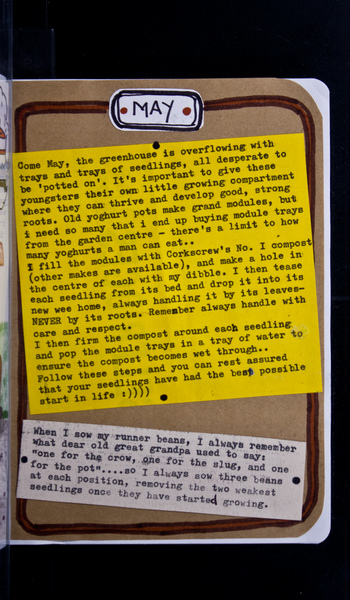 MAY
Come May, the greenhouse is overflowing with
trays and trays of seedlings, all desperate to
be 'potted on'. It's important to give these
youngsters their own little growing compartment
where they can thrive and develop good, strong
roots. Old yoghurt pots make grand modules, but
i need so many that i end up buying module trays
from the garden centre - there's a limit to how
many yoghurts a man can eat..
I fill the modules with Corkscrew's No. I compost
(other makes are available), and make a hole in
the centre of each with my dibble. I then tease
each seedling from its bed and drop it into its
new wee home, always handling it by its leaves-
NEVER by its roots. Remember always handle with
care and respect.
I then firm the compost around each seedling
and pop the module trays in a tray of water to
ensure the compost becomes wet through..
Follow these steps and you can rest assured
that your seedlings have had the best possible
start in life :))))
When I sow my runner beans, I always remember
what dear old great grandpa used to say:
"one for the crow, one for the slug, and one
for the pot"....so I always sow three beans
at each position, removing the two weakest
seedlings once they have started growing.